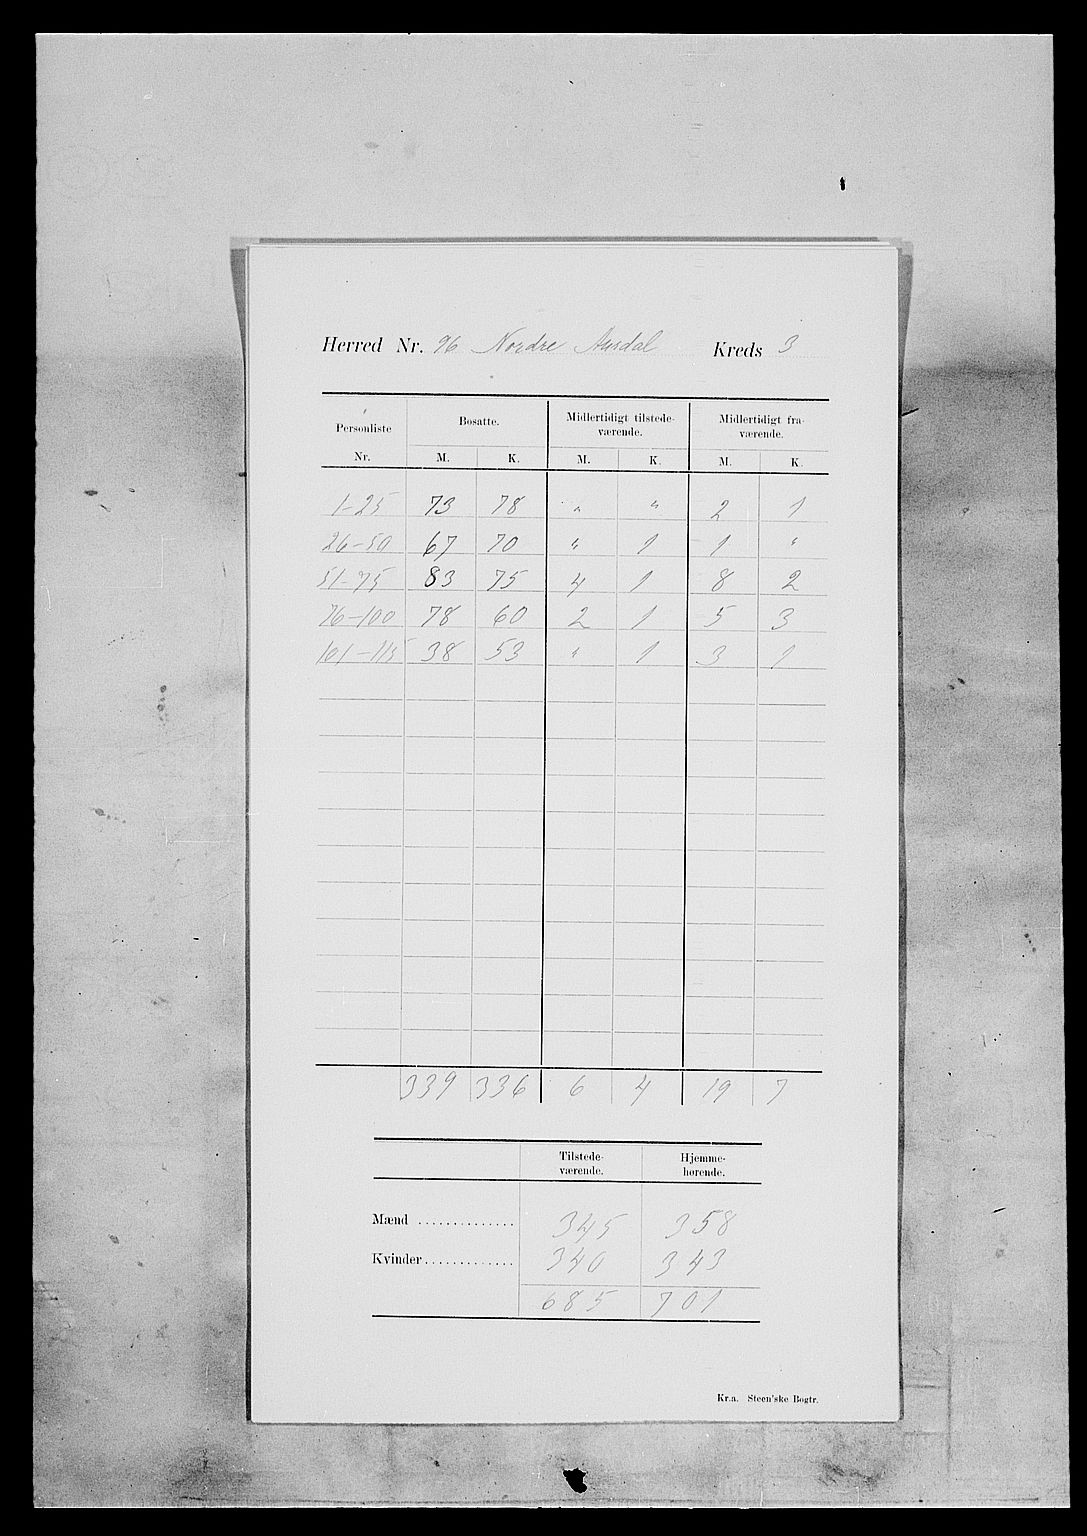 Herred Nr. 96 Nordre Aurdal Kreds 3
Personliste Nr. Bosatte. Midlertidigt tilstede-værende. Midlertidigt fra-værende.
M. K. M. K. M. K.
1-25 73 78 " " 2 1
26-50 67 70 " 1 1 "
51-75 83 75 4 1 8 2
76-100 78 60 2 1 5 3
101-115 38 53 " 1 3 1
339 336 6 4 19 7
Tilstede-værende. Hjemme-hørende.
Mænd .............. 345 358
Kvinder............. 340 343
685 701
Kr.a. Steen'ske Bogtr.